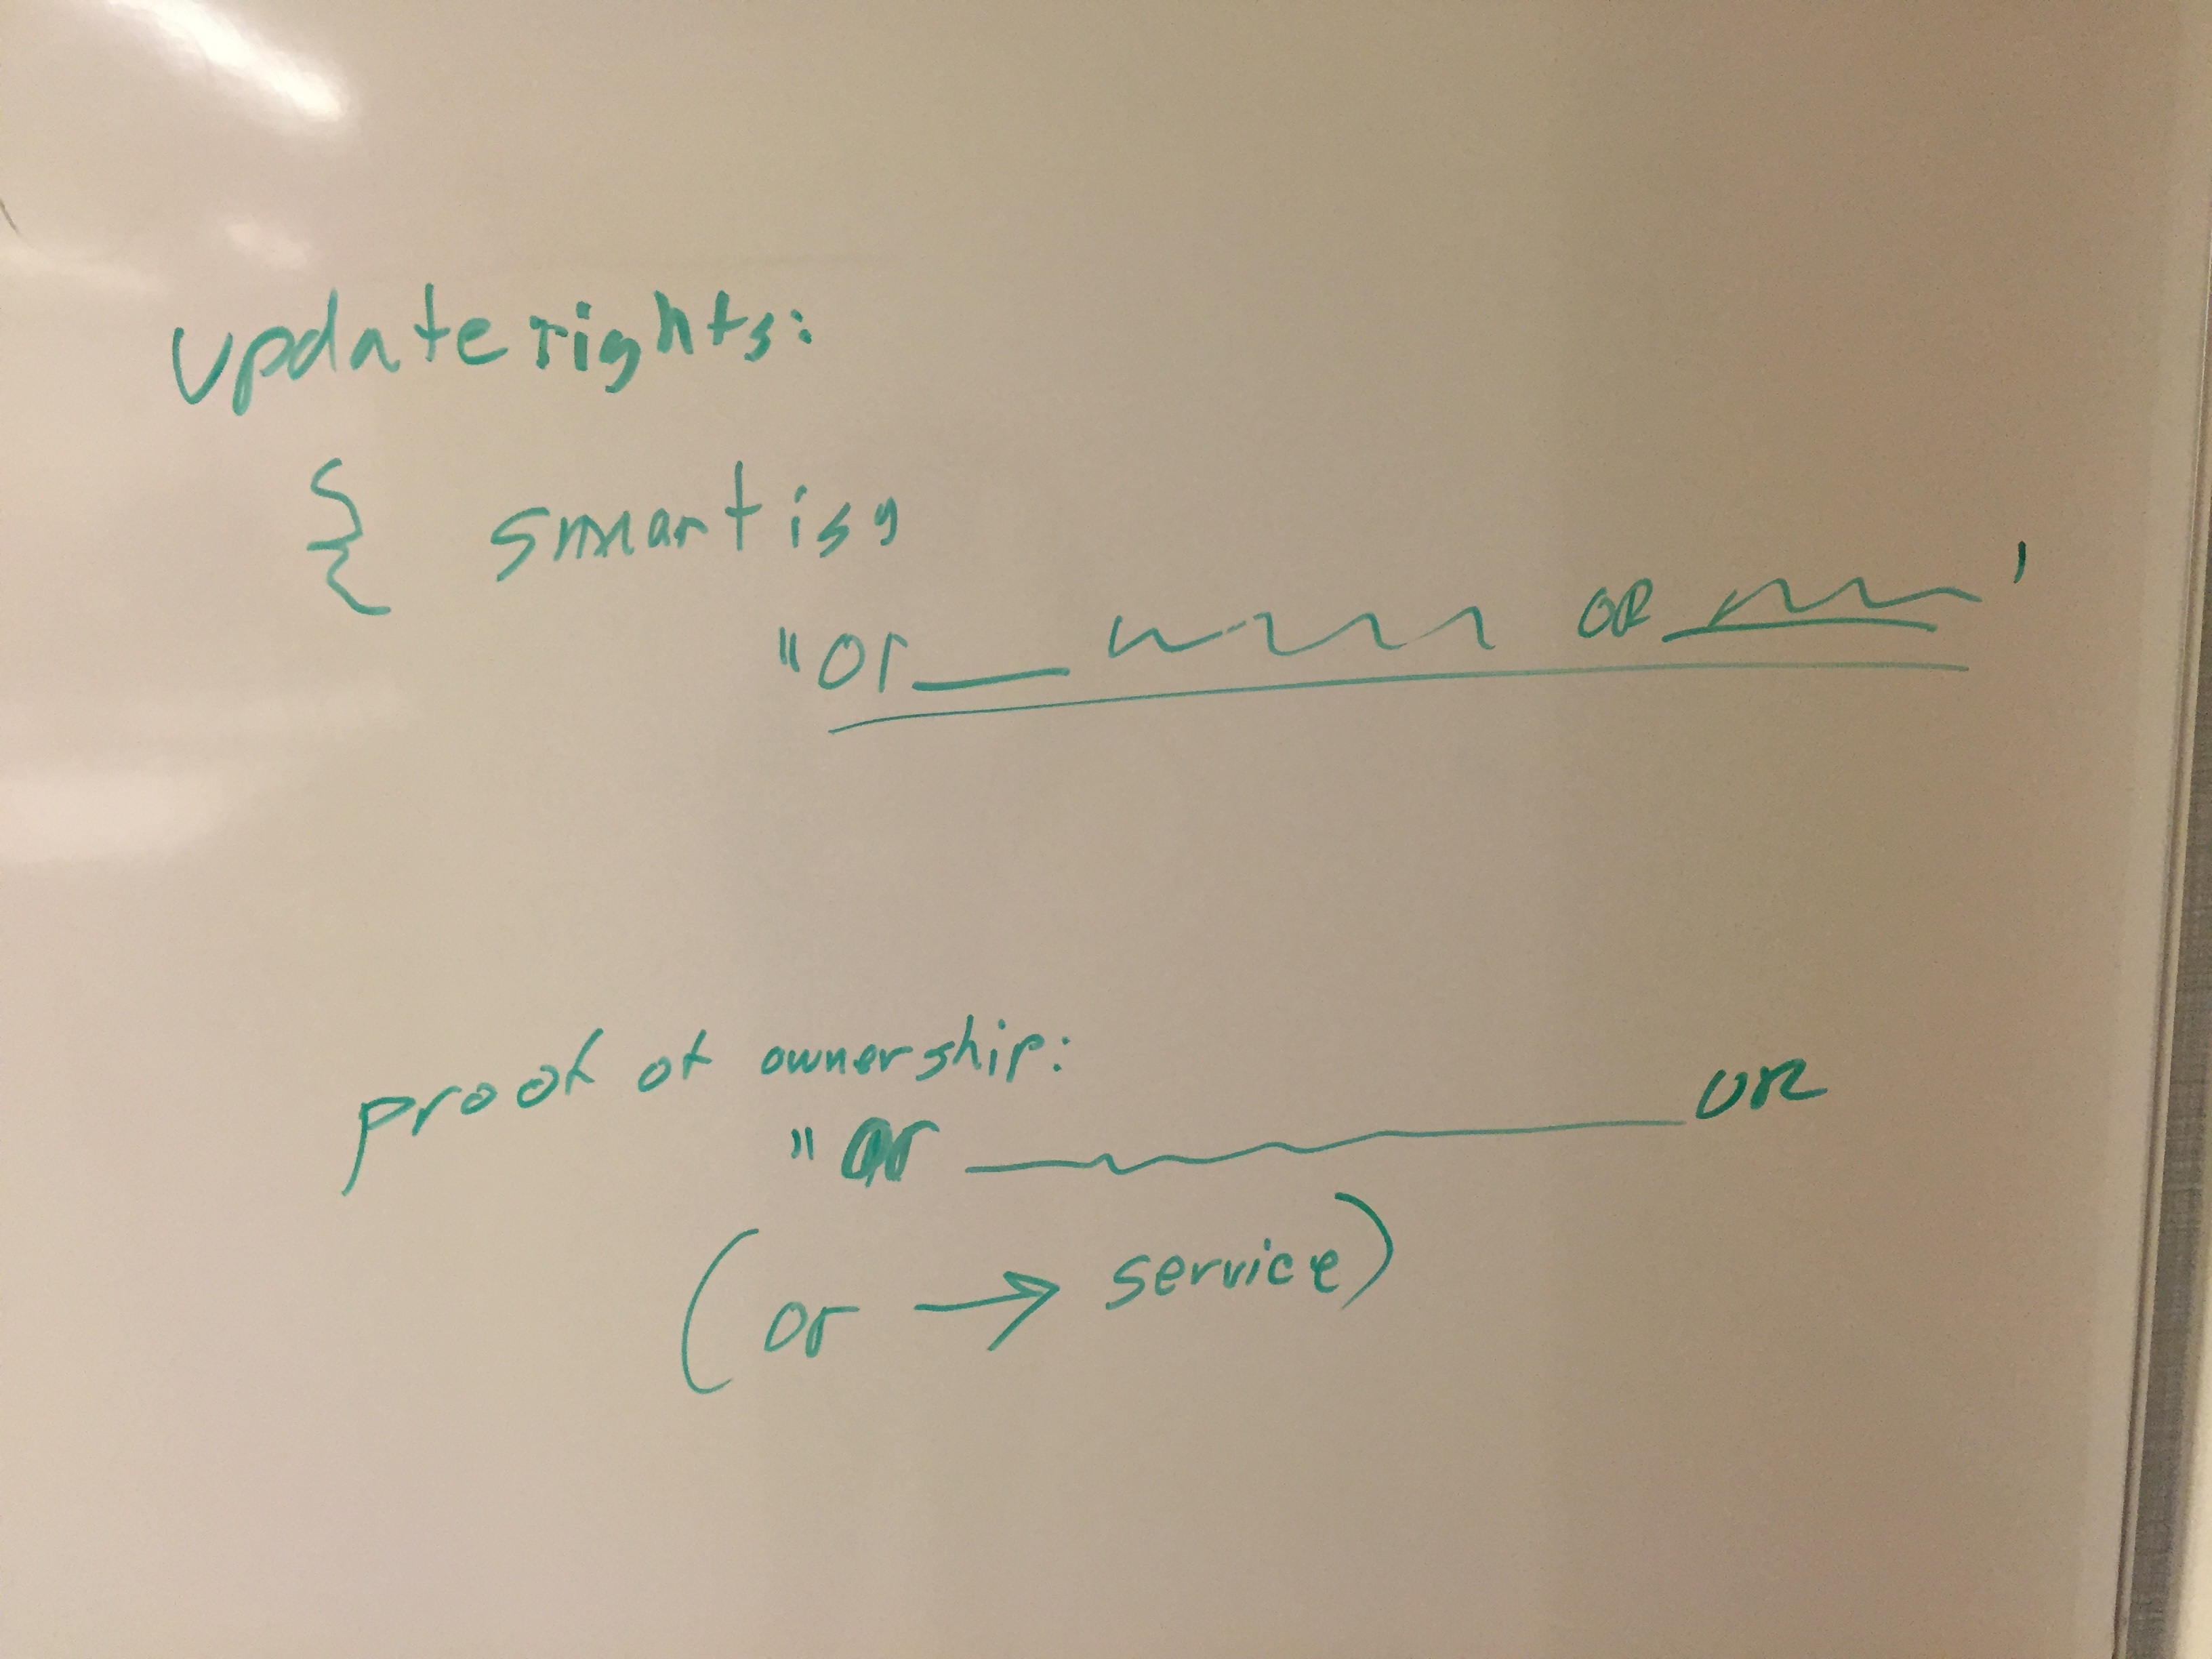 update rights:
{ smartisy
"or OR '
proof of ownership:
" or OR
(or → service)